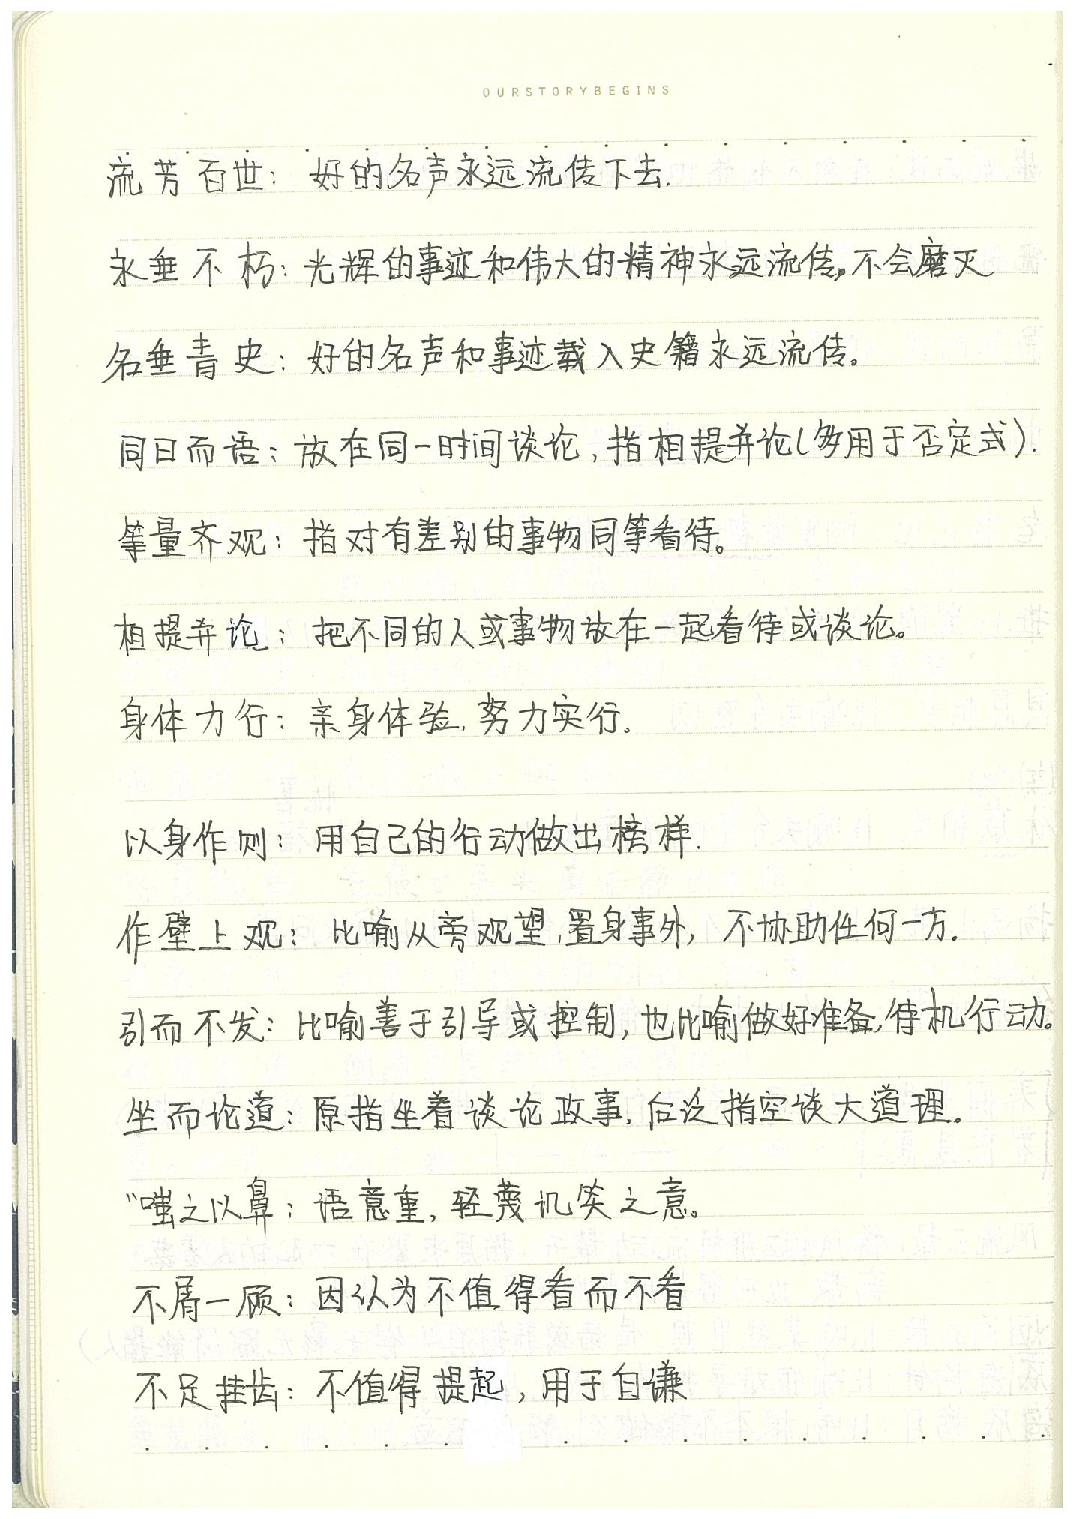 OURSTORYBEGINS
流芳百世：好的名声永远流传下去.
永垂不朽：光辉的事迹和伟大的精神永远流传，不会磨灭
名垂青史：好的名声和事迹载入史籍永远流传。
同日而语：放在同一时间谈论，指相提并论(多用于否定式).
等量齐观：指对有差别的事物同等看待。
相提并论：把不同的人或事物放在一起看待或谈论。
身体力行：亲身体验，努力实行。
以身作则：用自己的行动做出榜样.
作壁上观：比喻从旁观望，置身事外，不协助任何一方.
引而不发：比喻善于引导或控制，也比喻做好准备，待机行动。
坐而论道：原指坐着谈论政事，后泛指空谈大道理.
"嗤之以鼻：语意重，轻蔑讥笑之意。
不屑一顾：因认为不值得看而不看
不足挂齿：不值得提起，用于自谦